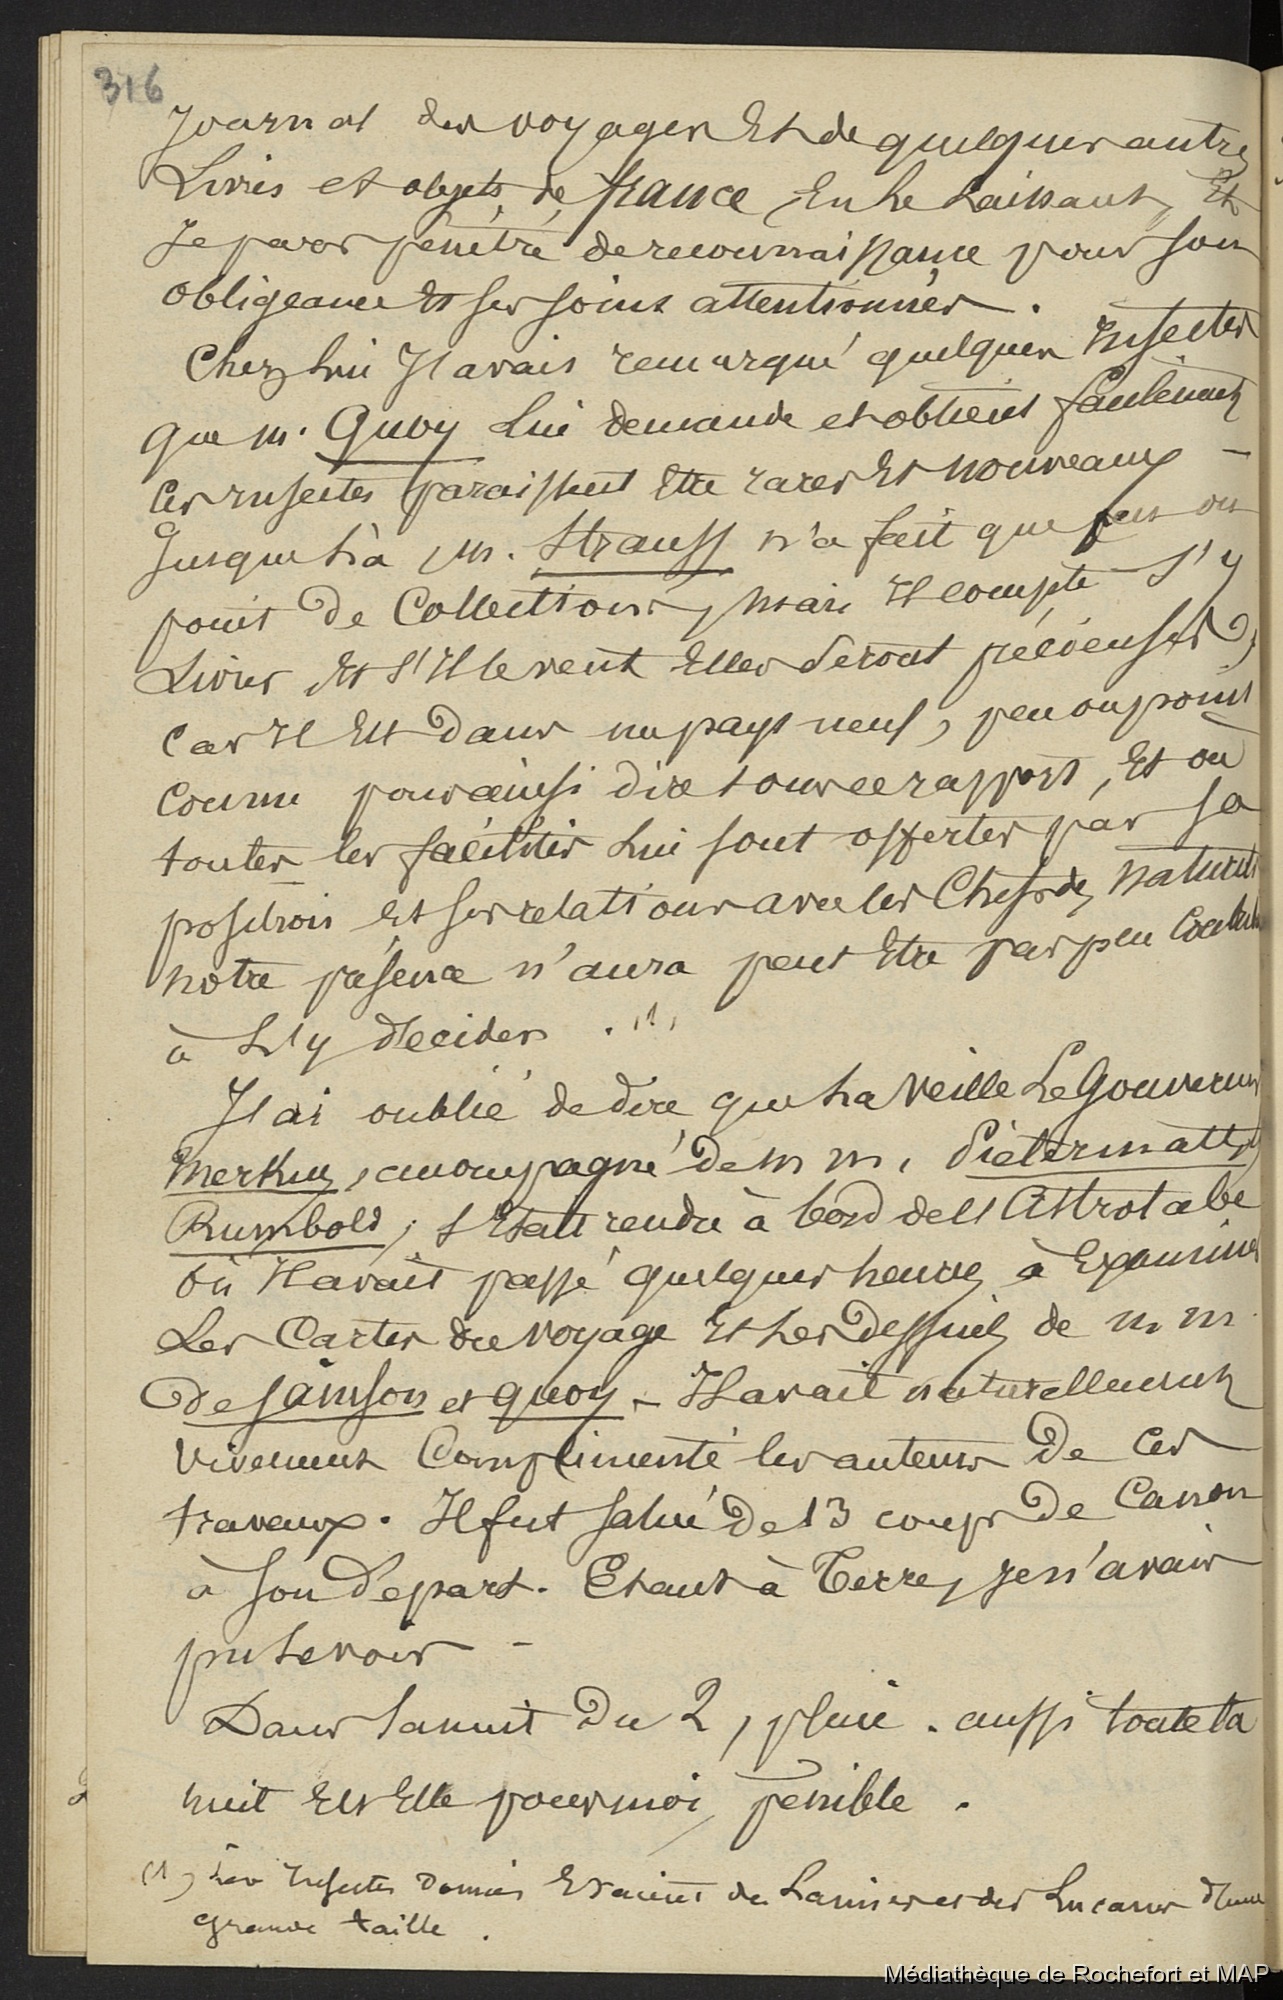 316
Journal des voyages Et de quelques autres
Livres et objets de france En Le Laissant, Et
Je pars pénétré de reconnaissance pour son
obligeance Et ses soins attentionnés.
Chez Lui J'avais remarqué quelques Insectes
que M. Quoy Lui demande et obtient facilement
Ces Insectes paraissent Etre rares Et nouveaux -
Jusque là M. Strauss n'a fait que peu ou
point de Collections, Mais Il compte S'y
Livrer Et S'Il le veut Elles Seront précieuses,
Car Il Est dans un pays neuf, peu ou point
Connu pour ainsi dire sous ce rapport, Et où
toutes les facilités Lui sont offertes par sa
position Et ses relations avec les Chefs des naturels
Notre présence n'aura peut Etre pas peu
à L'y décider . (1)
J'ai oublié de dire que La Veille Le Gouverneur
Merkus, accompagné de MM. Pietermatt,
Rumbold, s'Etait rendu à bord de l'Astrolabe
Où Il avait passé quelques heures à Examiner
Les Cartes du Voyage Et Les Dessins de MM.
De Sainson et Quoy - Il avait naturellement
Vivement Complimenté les auteurs De Ces
travaux. Il fut Salué De 13 coups De Canon
à Son Départ. Etant à Terre, Je n'avais
pu Le voir -
Dans La nuit Du 2, pluie. aussi toute la
nuit Est Elle pour moi pénible .
(1) Les Insectes Donnés Etaient des Lamies et des Lucanes d'Une
Grande taille .
Médiathèque de Rochefort et MAP